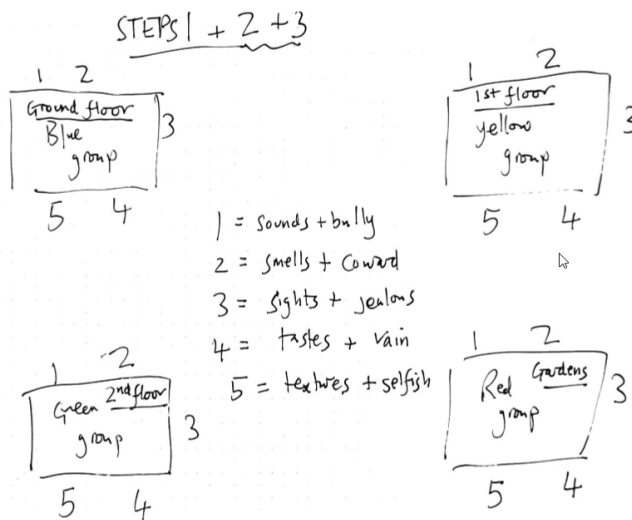 STEPS 1 + 2 + 3
1 2
Ground floor
Blue
group
3
5 4
1 2
1st floor
yellow
group
3
5 4
1 = sounds + bully
2 = smells + coward
3 = sights + jealous
4 = tastes + vain
5 = textures + selfish
1 2
Green 2nd floor
group
3
5 4
1 2
Red Gardens
group
3
5 4